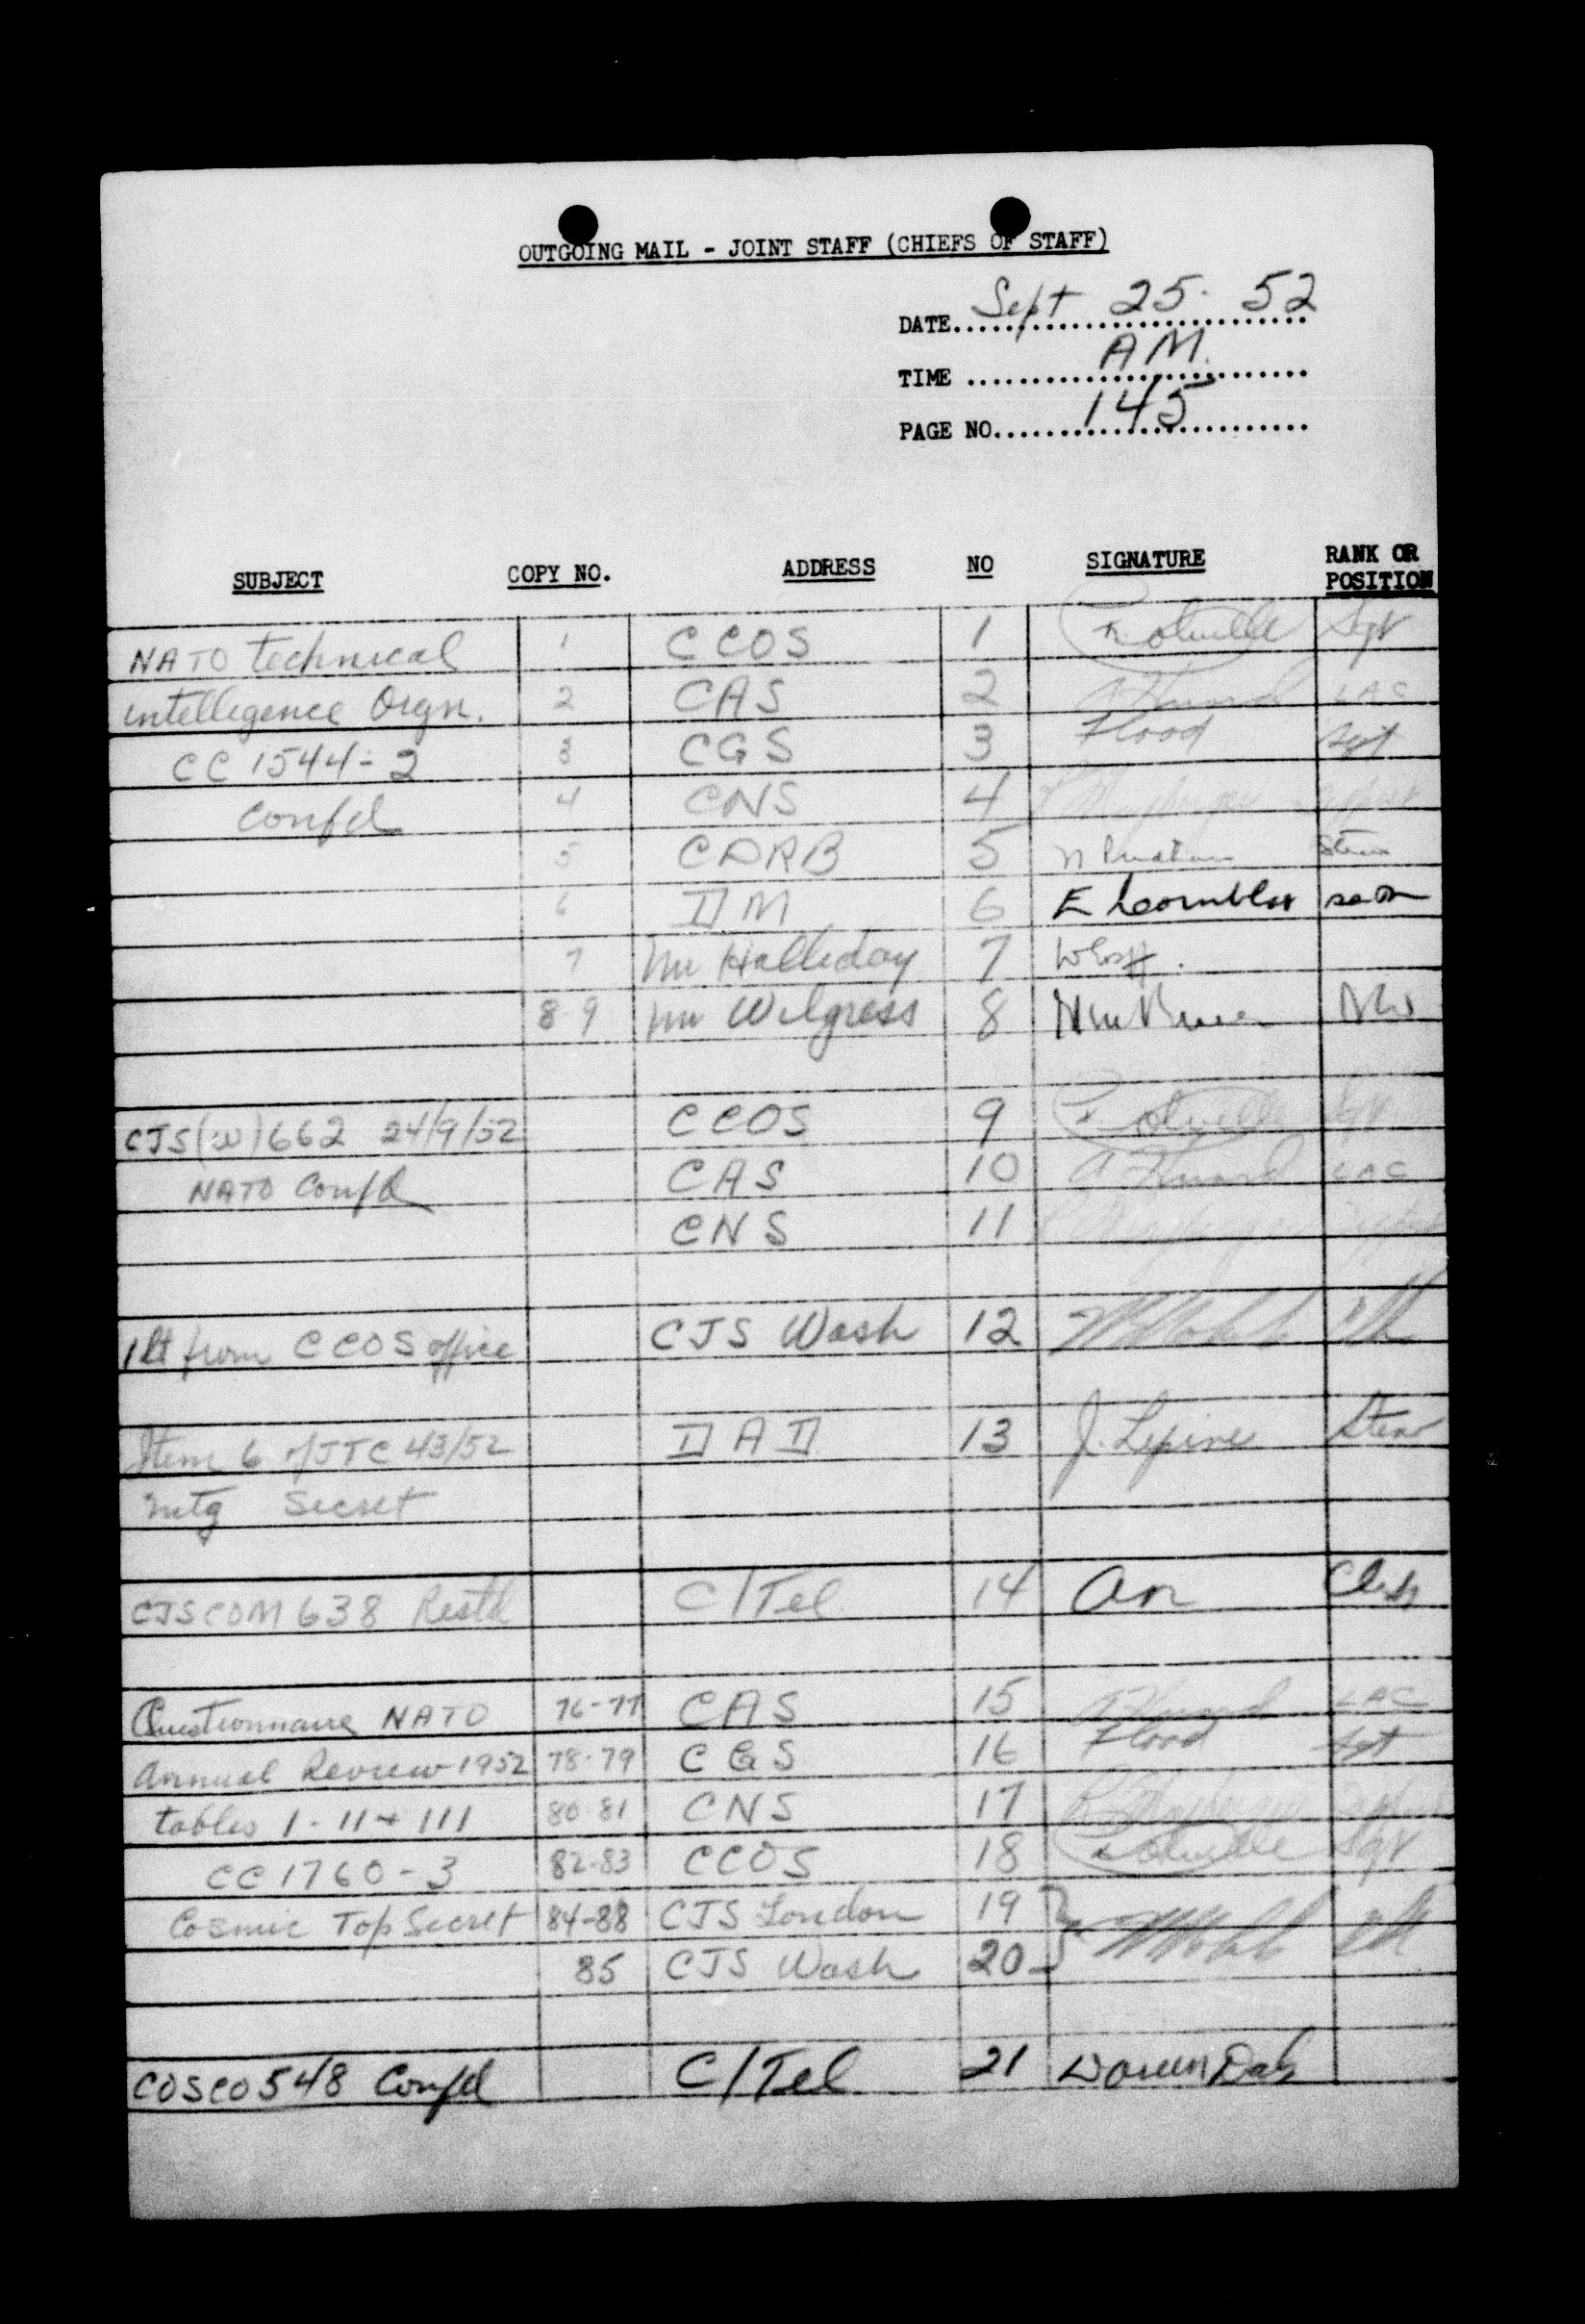 OUTGOING MAIL - JOINT STAFF (CHIEFS OF STAFF)
DATE Sept 25. 52
TIME AM.
PAGE NO. 145
SUBJECT COPY NO. ADDRESS NO SIGNATURE RANK OR POSITION
NATO technical 1 CCOS 1 Sgt
intelligence Orgn. 2 CAS 2 LAC
CC 1544-2 3 CGS 3 Flood Sgt
Confd 4 CNS 4
5 CDRB 5 n
6 DM 6 E
7 Mr Halliday 7
8-9 Mr Wilgress 8
CJS(W)662 24/9/52 CCOS 9 Sgt
NATO Confd CAS 10 LAC
CNS 11
1 lt from CCOS office CJS Wash 12
Item 6 of JTC 43/52 DAD 13 J. Lepine Steno
mtg Secret
CJSCOM 638 Restd C/Tel 14
Questionnaire NATO 76-77 CAS 15 LAC
Annual Review 1952 78-79 CGS 16 Flood Sgt
tables 1-11+111 80-81 CNS 17
CC 1760-3 82-83 CCOS 18 Sgt
Cosmic Top Secret 84-88 CJS London 19
85 CJS Wash 20
COSCO 548 Confd C/Tel 21